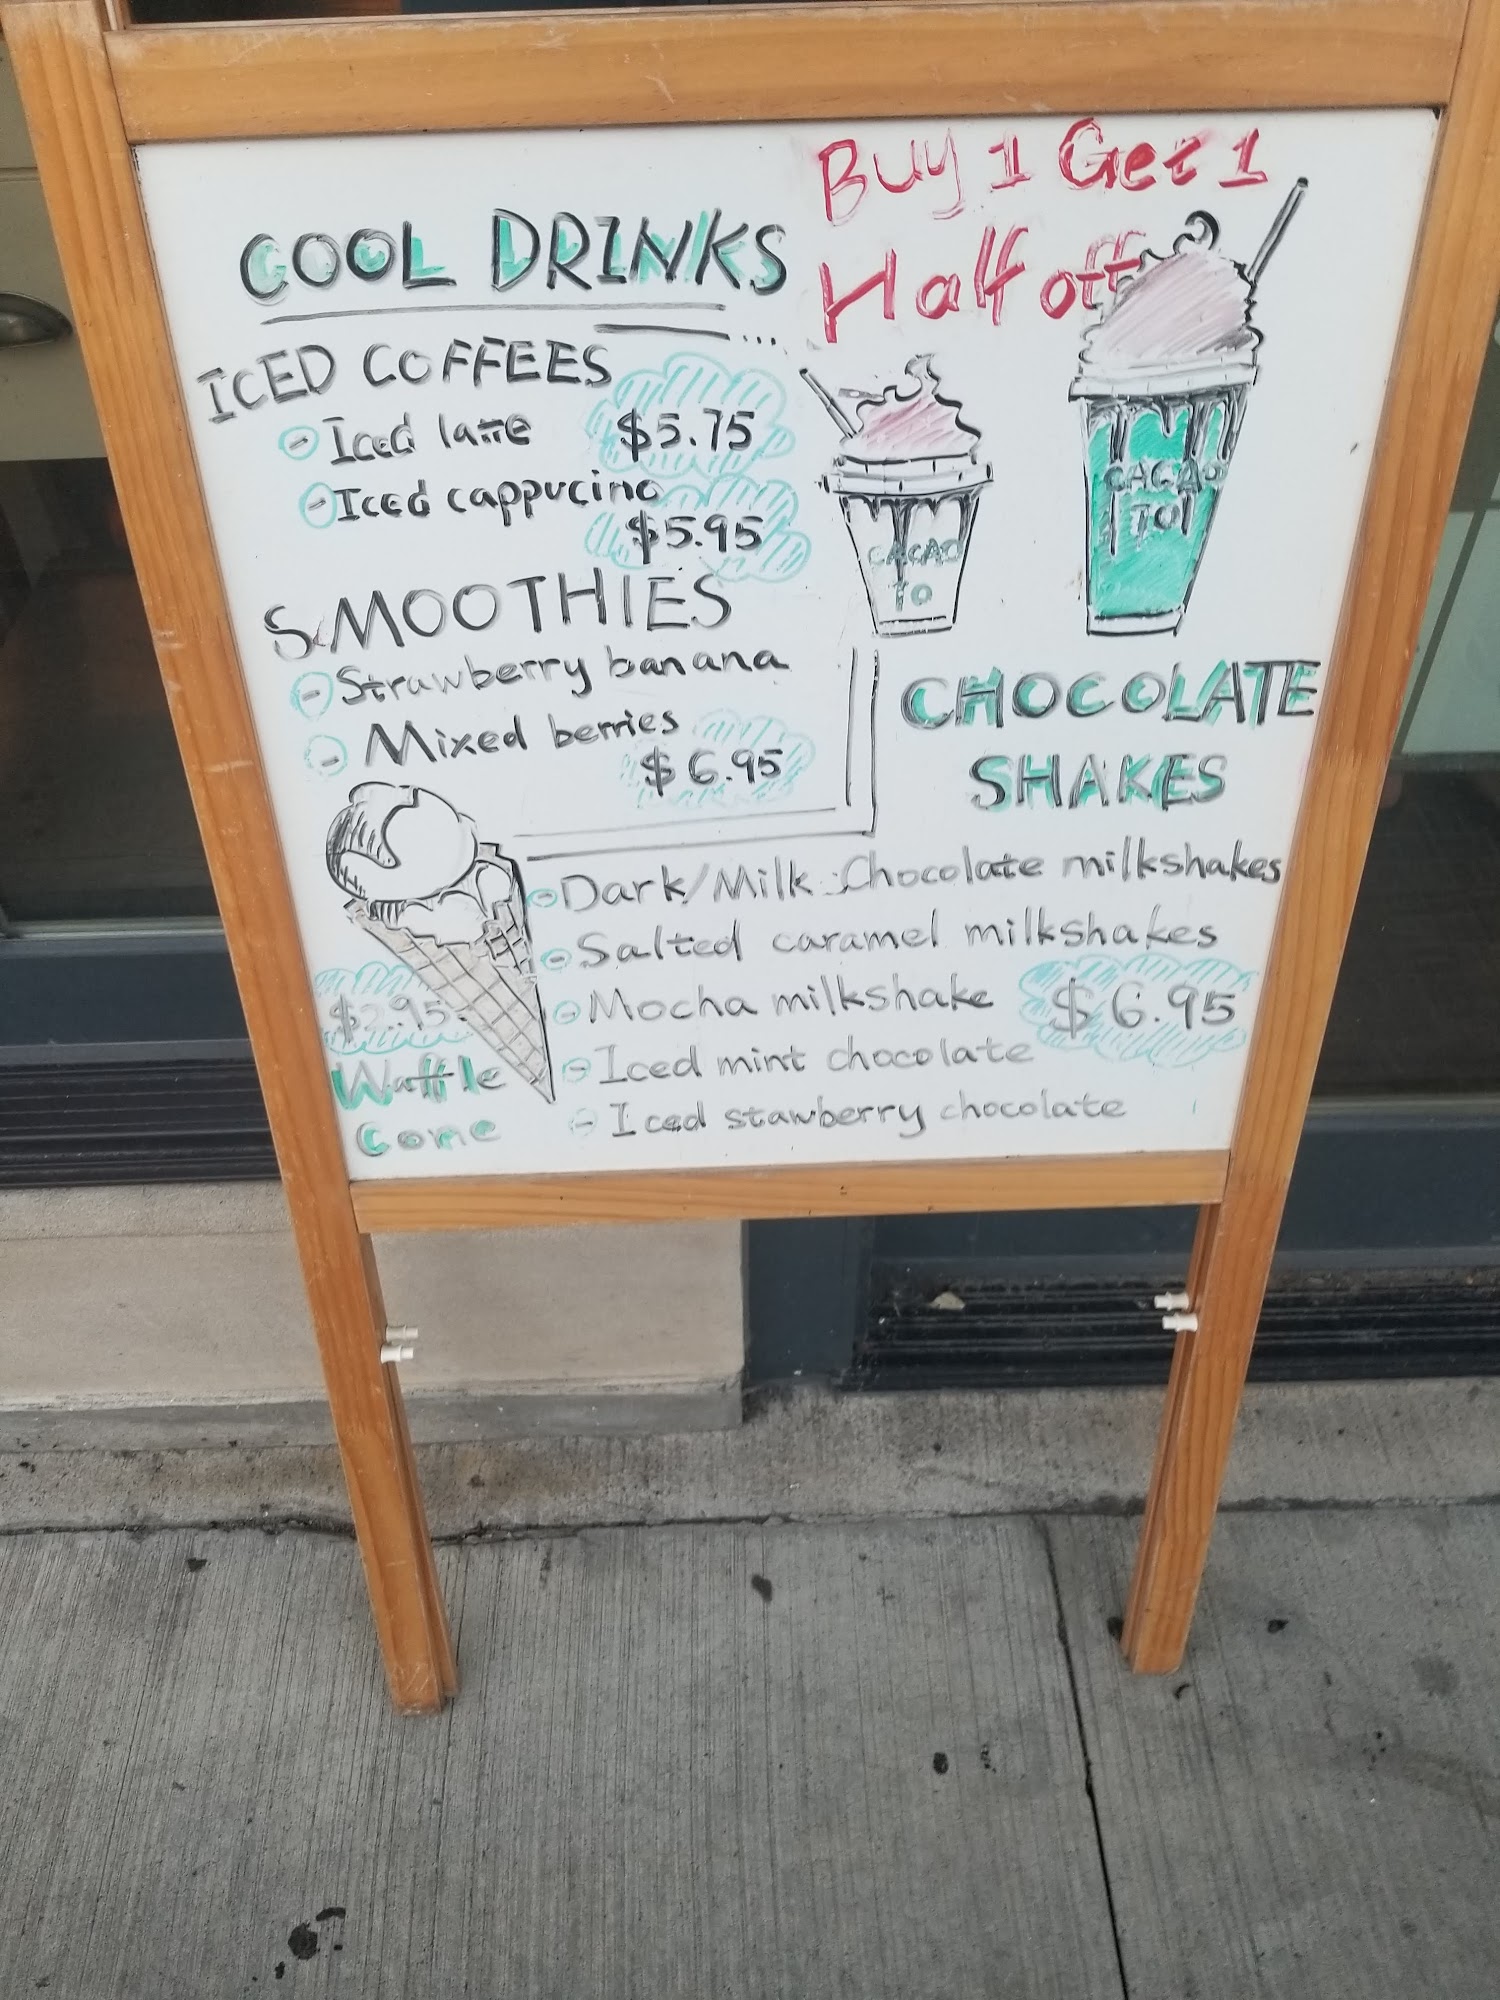 Buy 1 Get 1
Half off
COOL DRINKS
ICED COFFEES
- Iced latte $5.75
- Iced cappucino
$5.95
SMOOTHIES
- Strawberry banana
- Mixed berries
$6.95
CACAO
TO
CACAO
TO
CHOCOLATE
SHAKES
- Dark/Milk Chocolate milkshakes
- Salted caramel milkshakes
- Mocha milkshake $6.95
- Iced mint chocolate
- Iced stawberry chocolate
$2.95
Waffle
Cone